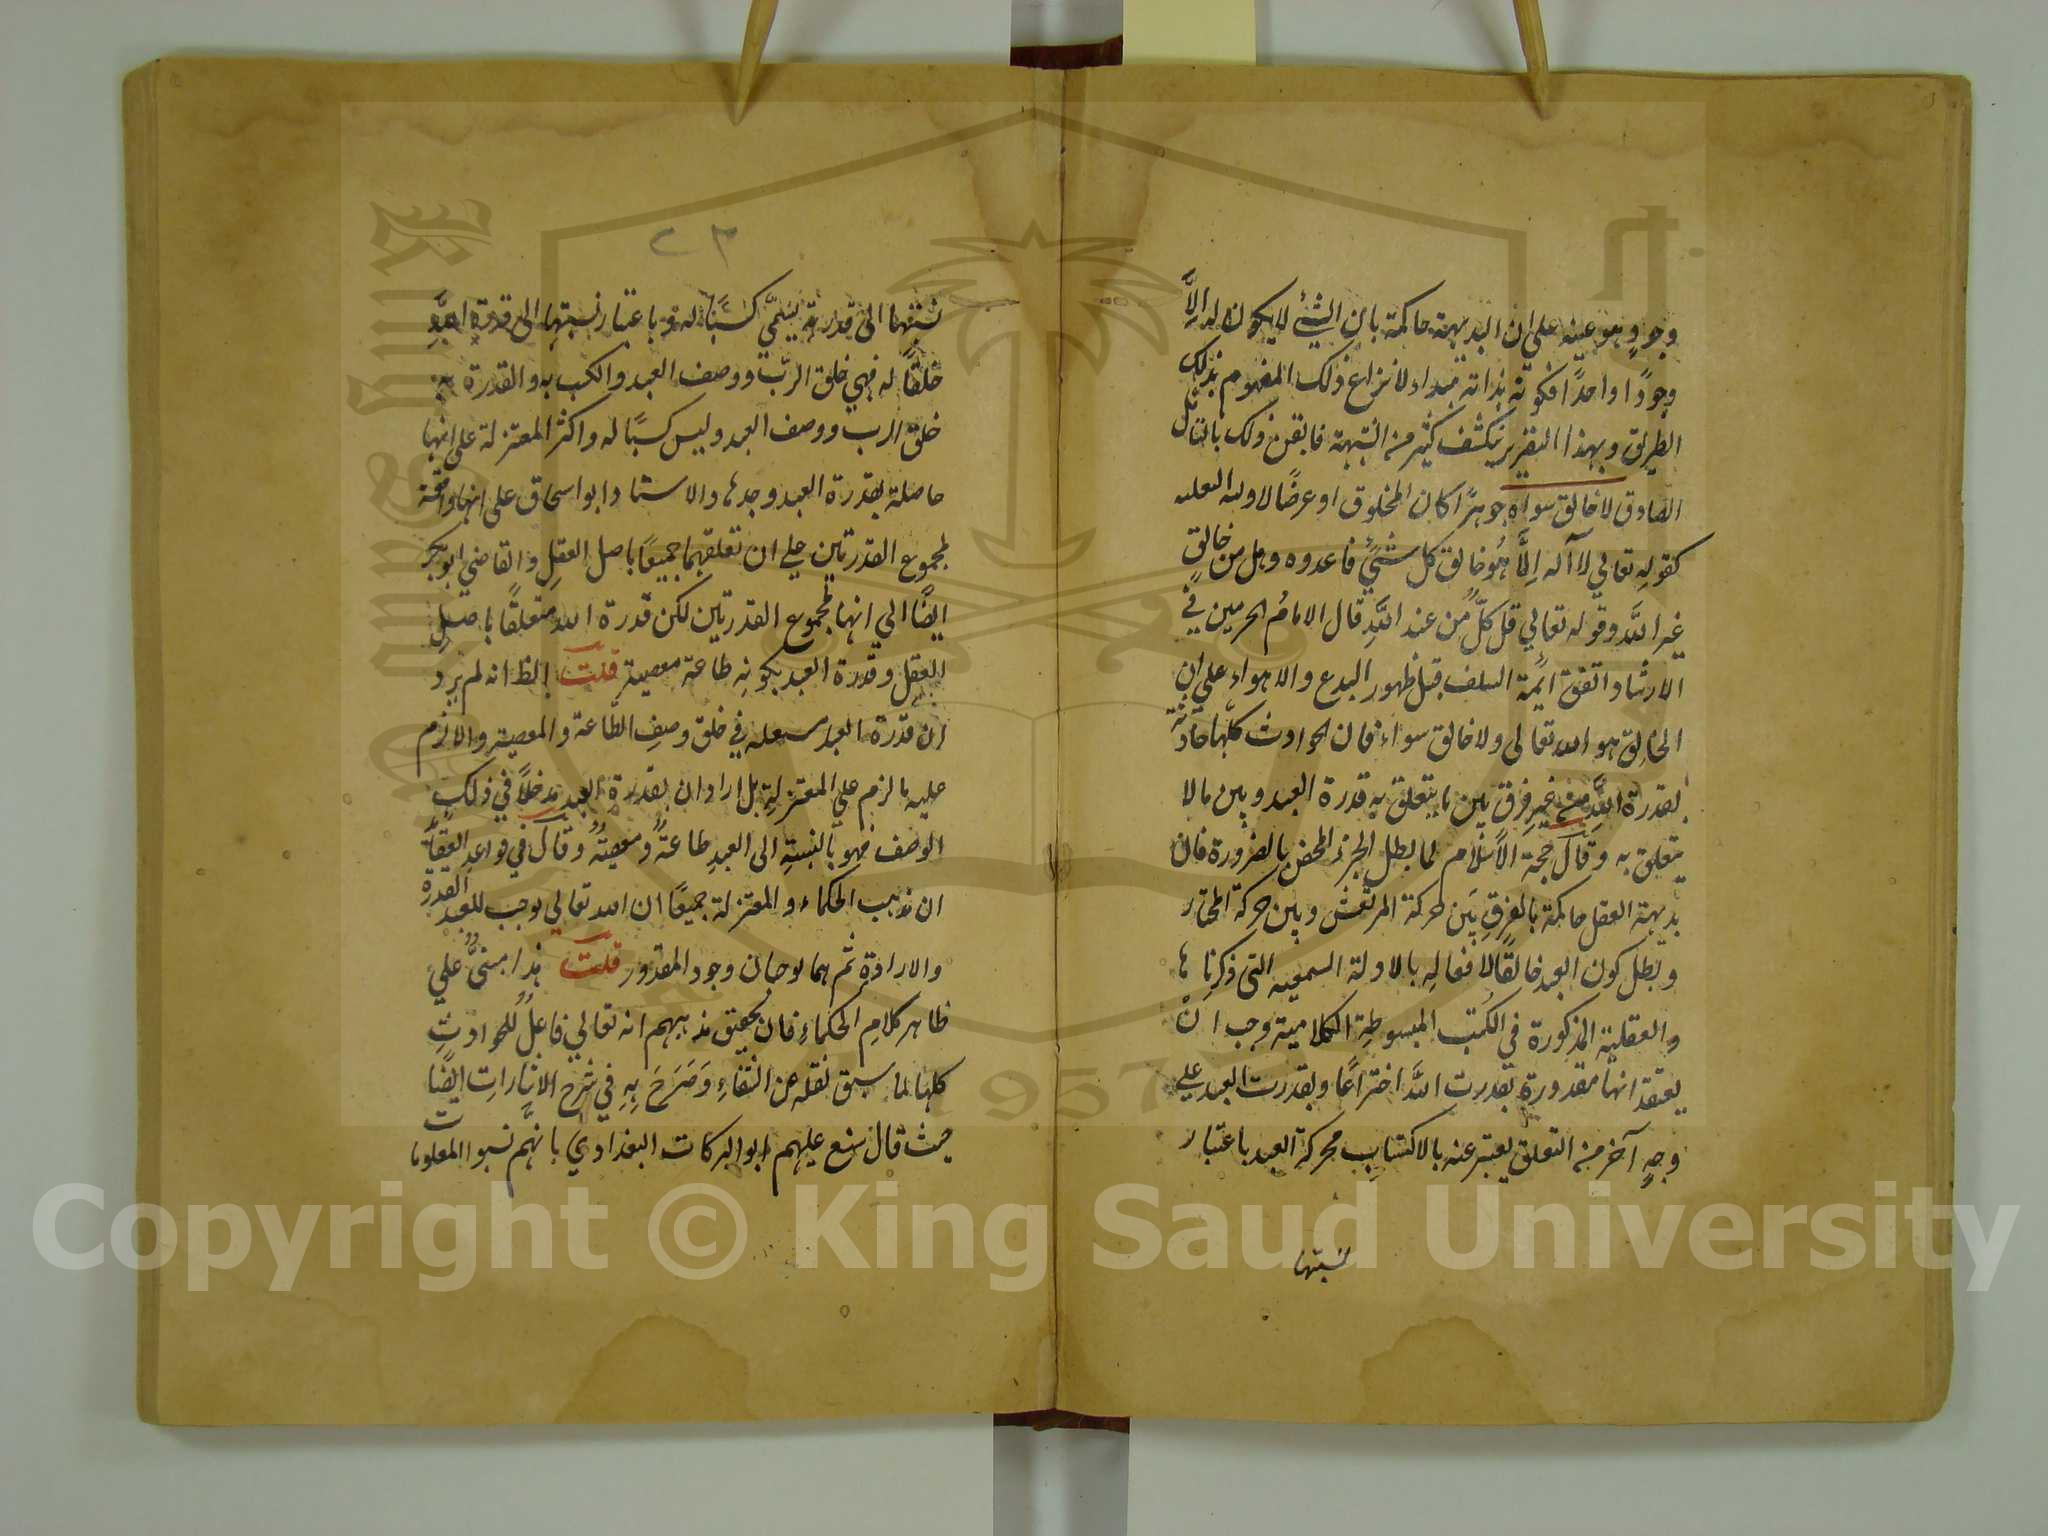 وجود وهو عينه على ان البديهة حاكمة بان الشئ لا يكون له الا
وجودًا واحدًا فكونه بذاته مبداء لانزاع ذلك المفهوم بذلك
الطريق وبهذا التقرير ينكشف كثير من الشبهة فايقن ذلك بالتامل
الصادق لا خالق سواه جوهرًا كان المخلوق او عرضًا لادلة النقلية
كقوله تعالي لا آله اِلَّا هُو خالق كل شئ فاعدوه وهل من خالقٍ
غير اللَّه وقوله تعالي قل كلٌّ من عند اللَّهِ قال الامامُ الحرمين في
الارشاد واتفق ائمة السلف قبل ظهور البدع والاهواء على ان
الخالِق هو الله تعالى ولا خالق سواء فان الحوادث كلّها حادثة
بقدرة اللَّهِ من غير فرق بين ما يتعلق به قدرة العبد وبين مالا
يتعلق به وقال حجة الاسلام لما بطل الجبر المحض بالضرورة فان
بديهة العقل حاكمة بالفرقِ بَين حركة المرتعش وبين حركة المختار
وبطل كون العبد خالقًا لافعالِه بالادلة السمعيه التى ذكرناها
والعقلية المذكورة في الكتب المبسوطة الكلامية وجب انْ
يعتقد انها مقدورة بقدرت اللَّه اختراعًا وبقدرت العبد على
وجهٍ آخر من التعلق يعتبر عنه بالاكتسابِ فحركة العبد باعتبار
نسبتها
٢٣
نسبتها الى قدرته يسَمَّى كسبًا له وباعتبار نسبتها الى قدرة اللَّهِ
خلقًا له فهي خلق الرب ووصف العبد والكسب به والقدرة به
خلق الرب ووصف العبد وليس كسبًا له واكثر المعتزلة على انها
حاصلة بقدرة العبد وحدها والاستاد ابو اسحاق على انها واقعة
لمجموع القدرتين على ان تعلقهما جميعًا باصل العقلِ والقاضي ابو بكر
ايضًا الي انها لمجموع القدرتين لكن قدرة الله متعلقًا باصلِ
العقل وقدرة العبد بكونِه طاعة معصية قلت الظ انه لم يرد
ان قدرة العبد مستقله في خلق وصفِ الطّاعة والمعصية والالزم
عليه مالزم على المعتزلةِ بل اراد ان بقدرة العبد مدخلًا في ذلك
الوصف فهو بالنسبةِ الى العبدِ طاعةٌ ومعصيةٌ وقال في قواعد العقائد
ان مذهب الحكماء والمعتزلة جميعًا ان الله تعالي يوجب للعبد القدرة
والارادة ثم هما يوجبان وجود المقدور قلت هذا مبنيٌّ على
ظاهر كلامِ الحكماءِ فان تحقيق مذهبهم انه تعالي فاعلٌ للحوادثِ
كلها لما سبق نقله من الشفاءِ وَصَرَحَ بِهِ في شرح الاشارات ايضًا
حيث قال شنع عليهم ابو البركات البغدادي بانَّهم نسبوا المعلولات